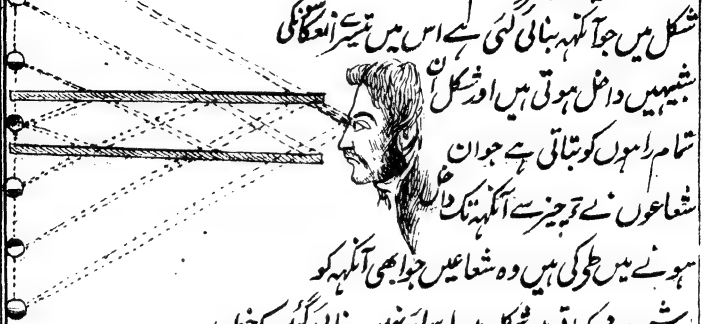 شکل میں جو آنکھہ بنائی گئی ہے اس میں تیسرے انعکاسونکی
شبیہیں داخل ہوتی ہیں اور شکل ان
تمام راہوں کو بتاتی ہے جو ان
شعاعوں نے ہر چیز سے آنکھہ تک داخل
ہونے میں طی کی ہیں وہ شعاعیں جو ابھی آنکھہ کو